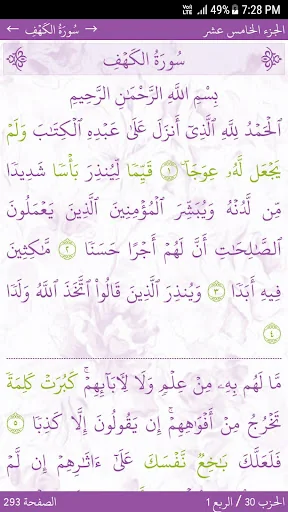 VoLTE 49% 7:28 PM
← سُورَةُ الكَهۡفِ → الجزء الخامس عشر
سُورَةُ الكَهۡفِ
بِسۡمِ اللَّهِ الرَّحۡمَٰنِ الرَّحِيمِ
ٱلۡحَمۡدُ لِلَّهِ ٱلَّذِيٓ أَنزَلَ عَلَىٰ عَبۡدِهِ ٱلۡكِتَٰبَ وَلَمۡ
يَجۡعَل لَّهُۥ عِوَجَاۜ ١ قَيِّمٗا لِّيُنذِرَ بَأۡسٗا شَدِيدٗا
مِّن لَّدُنۡهُ وَيُبَشِّرَ ٱلۡمُؤۡمِنِينَ ٱلَّذِينَ يَعۡمَلُونَ
ٱلصَّٰلِحَٰتِ أَنَّ لَهُمۡ أَجۡرًا حَسَنٗا ٢ مَّٰكِثِينَ
فِيهِ أَبَدٗا ٣ وَيُنذِرَ ٱلَّذِينَ قَالُواْ ٱتَّخَذَ ٱللَّهُ وَلَدٗا
٤
مَّا لَهُم بِهِۦ مِنۡ عِلۡمٖ وَلَا لِأٓبَآئِهِمۡۚ كَبُرَتۡ كَلِمَةٗ
تَخۡرُجُ مِنۡ أَفۡوَٰهِهِمۡۚ إِن يَقُولُونَ إِلَّا كَذِبٗا ٥
فَلَعَلَّكَ بَٰخِعٞ نَّفۡسَكَ عَلَىٰٓ ءَاثَٰرِهِمۡ إِن لَّمۡ
الحزب 30 / الربع 1 الصفحة 293